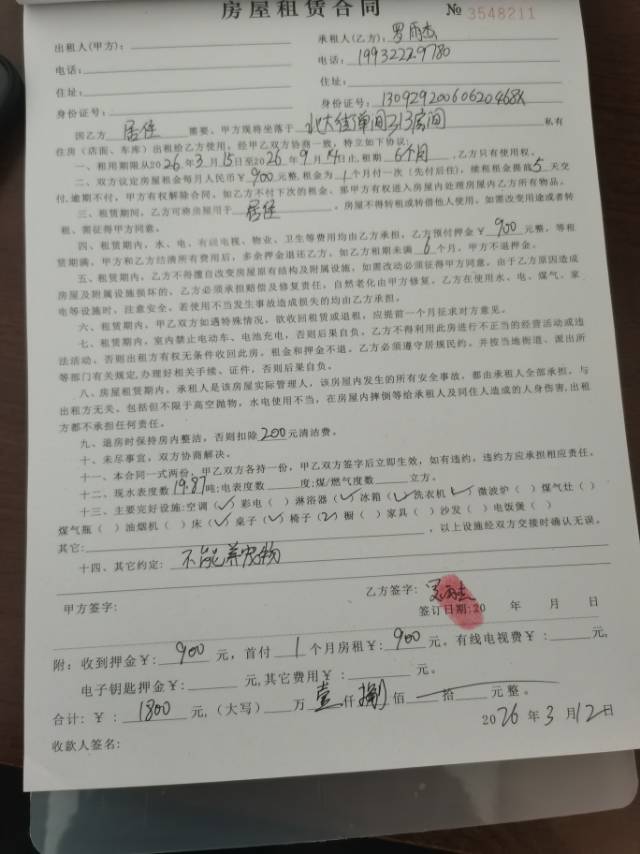 房屋租赁合同 № 3548211
出租人(甲方): 承租人(乙方): 罗雨杰
电话: 电话: 19932229780
住址: 住址:
身份证号: 身份证号: 13092920060620468X
因乙方 居住 需要、甲方现将坐落于 北大街单间213房间 私有
住房（店面、车库）出租给乙方使用。经甲乙双方协商一致，特立如下协议：
一、租用期限从2026年3月15日至2026年9月14日止,租期 6个月 ,乙方只有使用权。
二、双方议定房屋租金每月人民币¥ 900 元整,租金为 1 个月付一次（先付后住），续租租金提前 5 天交
付,逾期不付，甲方有权解除合同。如乙方不付下次的租金、那甲方有权进入房屋内处理房屋内乙方所有物品。
三、租赁期间，乙方可将房屋用于 居住 。房屋不得转租或转借他人使用。如需改变用途或者转
租、需征得甲方同意。
四、租赁期内，水、电、有线电视、物业、卫生等费用均由乙方承担，乙方预付押金¥ 900 元整，等租
赁期满，甲方和乙方结清所有费用后，多余押金退还乙方。如乙方租期未满 6 个月，甲方不退押金。
五、租赁期内，乙方不得擅自改变房屋原有结构及附属设施，如需改动必须征得甲方同意。由于乙方原因造成
房屋及附属设施损坏的，乙方必须承担赔偿及修复责任，自然老化由甲方修复，乙方在使用水、电、煤气、家
电等设施时，注意安全，若使用不当发生事故造成损失的均由乙方承担。
六、租赁期内，甲乙双方如遇特殊情况，欲收回租赁或退租，应提前一个月征求对方意见。
七、租赁期内，室内禁止电动车、电池充电，否则后果自负。乙方不得利用此房进行不正当的经营活动或违
法活动、否则出租方有权无条件收回此房。租金和押金不退。乙方必须遵守居规民约，并按当地街道、派出所
等部门有关规定,办理好相关手续、证件，否则后果自负。
八、房屋租赁期内，承租人是该房屋实际管理人，该房屋内发生的所有安全事故，都由承租人全部承担，与
出租方无关。包括但不限于高空抛物，水电使用不当，在房屋内摔倒等给承租人及同住人造成的人身伤害,出租
方都不承担任何责任。
九、退房时保持房内整洁，否则扣除 200 元清洁费。
十、未尽事宜，双方协商解决。
十一、本合同一式两份，甲乙双方各持一份，甲乙双方签字后立即生效，如有违约，违约方应承担相应责任。
十二、现水表度数 19.87 吨;电表度数 度;煤/燃气度数 立方。
十三、主要完好设施:空调（✓）彩电（ ）淋浴器（✓）冰箱（✓）洗衣机（✓）微波炉（ ）煤气灶（ ）
煤气瓶（ ）油烟机（ ）床（✓）桌子（✓）椅子（2）橱（ ）家具（ ）沙发（ ）电饭煲（ ）
其它: ，以上设施经双方交接时确认无误。
十四、其它约定: 不能养宠物
甲方签字: 乙方签字: 罗雨杰
签订日期:20 年 月 日
附：收到押金¥: 900 元，首付 1 个月房租¥: 900 元。有线电视费¥： 元,
电子钥匙押金¥: 元,其它费用¥： 元。
合计:¥： 1800 元,（大写） 万 壹 仟 捌 佰 拾 元整。
2026年3月12日
收款人签名: